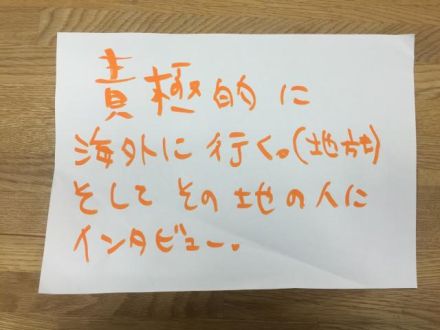 責極的に
海外に行く。(地方)
そしてその地の人に
インタビュー。